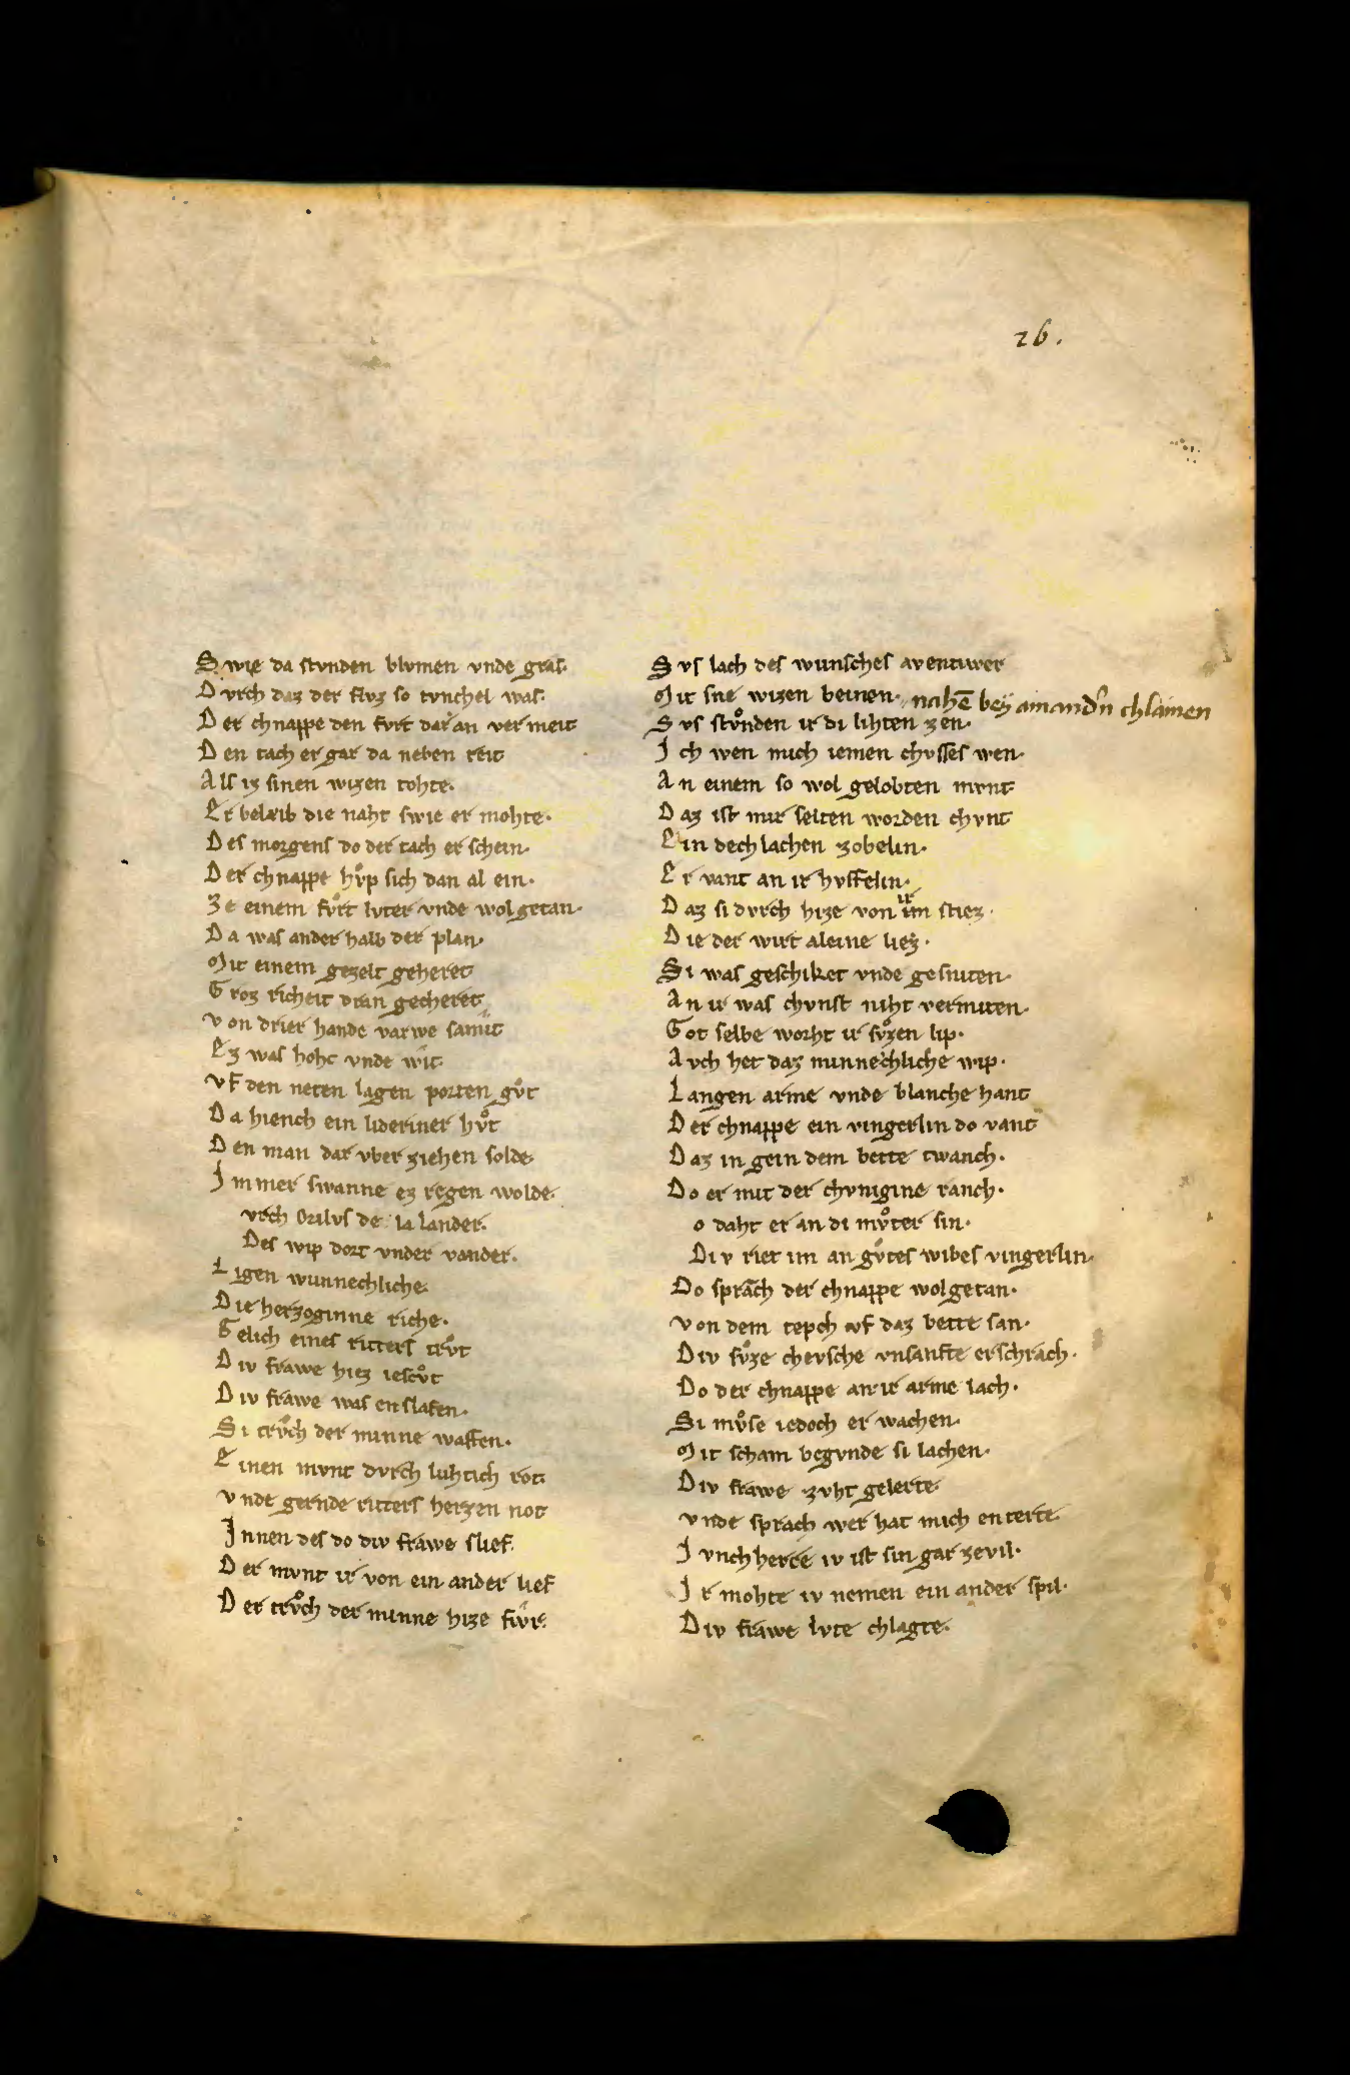 26.
Swie da stvnden blvmen vnde gras·
Dvrch daz der flvz so tvnchel was·
Der chnappe den fvrt dar an vermeit
Den tach er gar da neben reit
Als iz sinen wizen tohte·
Er beleib die naht swie er mohte·
Des morgens do der tach erschein·
Der chnappe hvͦp sich dan al ein·
Ze einem fvͦrt lvter vnde wolgetan·
Da was anderhalb der plan·
Mit einem gezelt geheret
Groz richeit dran gecheret
Von drier hande varwe samit
Ez was hoh vnde wit·
Vf den neten lagen porten gvͦt
Da hiench ein lideriner hvͦt
Den man dar vber ziehen solde·
Immer swanne ez regen wolde·
vrch Orilvs de la lander·
Des wip dort vnder vander·
Ligen wunnechliche·
Die herzoginne riche·
Gelich eines ritters trvͦt
Div frawe hiez iescvͦt
Div frawe was enslafen·
Si trvͦch der minne waffen·
Einen mvnt dvrch luhtich rot
Vnde gernde ritters herzen not
Innen des do div frawe slief·
Der mvnt ir von ein ander lief
Der trvͦch der minne hize fivr·
Svs lach des wunsches aventiwer
Mit sne wizen beinen· nahē bey ainandˀn chlainen
Svs stvͦnden ir di lihten zen·
Ich wen mich iemen chvsses wen·
An einem so wol gelobten mvnt·
Daz ist mir selten worden chvnt
Ein dechlachen zobelin·
Er vant an ir hvffelin·
Daz si dvrch hize von ir im stiez·
Die der wirt aleine liez·
Si was geschiket vnde gesniten·
An ir was chvnst niht vermiten·
Got selbe worht ir svͦzen lip·
Avch het daz minnechliche wip·
Langen arme vnde blanche hant
Der chnappe ein vingerlin do vant
Daz in gein dem bette twanch·
Do er mit der chvnigine ranch·
o daht er an di mvͦter sin·
Div riet im an gvͦtes wibes vingerlin·
Do sprach der chnappe wolgetan·
Von dem tepch vf daz bette san·
Div svͦze chevsche vnsanfte erschrach·
Do der chnappe an ir arme lach·
Si mvͦse iedoch erwachen·
Mit scham begvnde si lachen·
Div frawe zvht gelerte·
Vnde sprach wer hat mich enterte·
Ivnchherre iv ist sin gar zevil·
Ir mohte iv nemen ein ander spil·
Div frawe lvte chlagte·